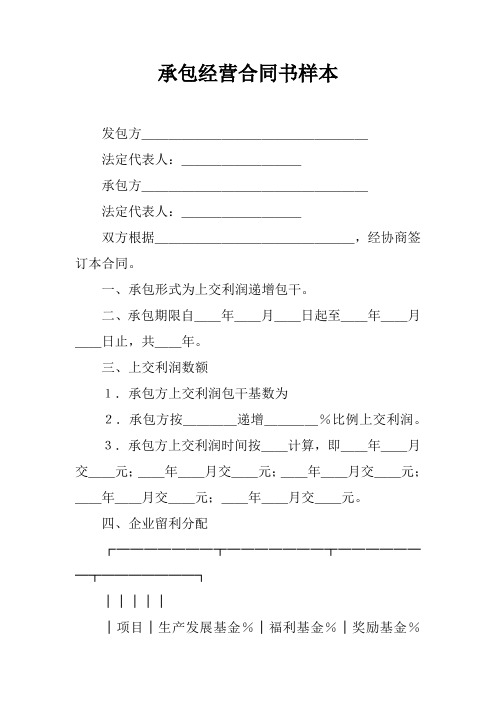 承包经营合同书样本
发包方__________________________________
法定代表人：__________________
承包方__________________________________
法定代表人：__________________
双方根据______________________________，经协商签
订本合同。
一、承包形式为上交利润递增包干。
二、承包期限自____年____月____日起至____年____月
____日止，共____年。
三、上交利润数额
１．承包方上交利润包干基数为
２．承包方按________递增________％比例上交利润。
３．承包方上交利润时间按____计算，即____年____月
交____元；____年____月交____元；____年____月交____元；
____年____月交____元；____年____月交____元。
四、企业留利分配
┌───────┬───────┬──────
─┬───────┐
│││││
│项目│生产发展基金％│福利基金％│奖励基金％